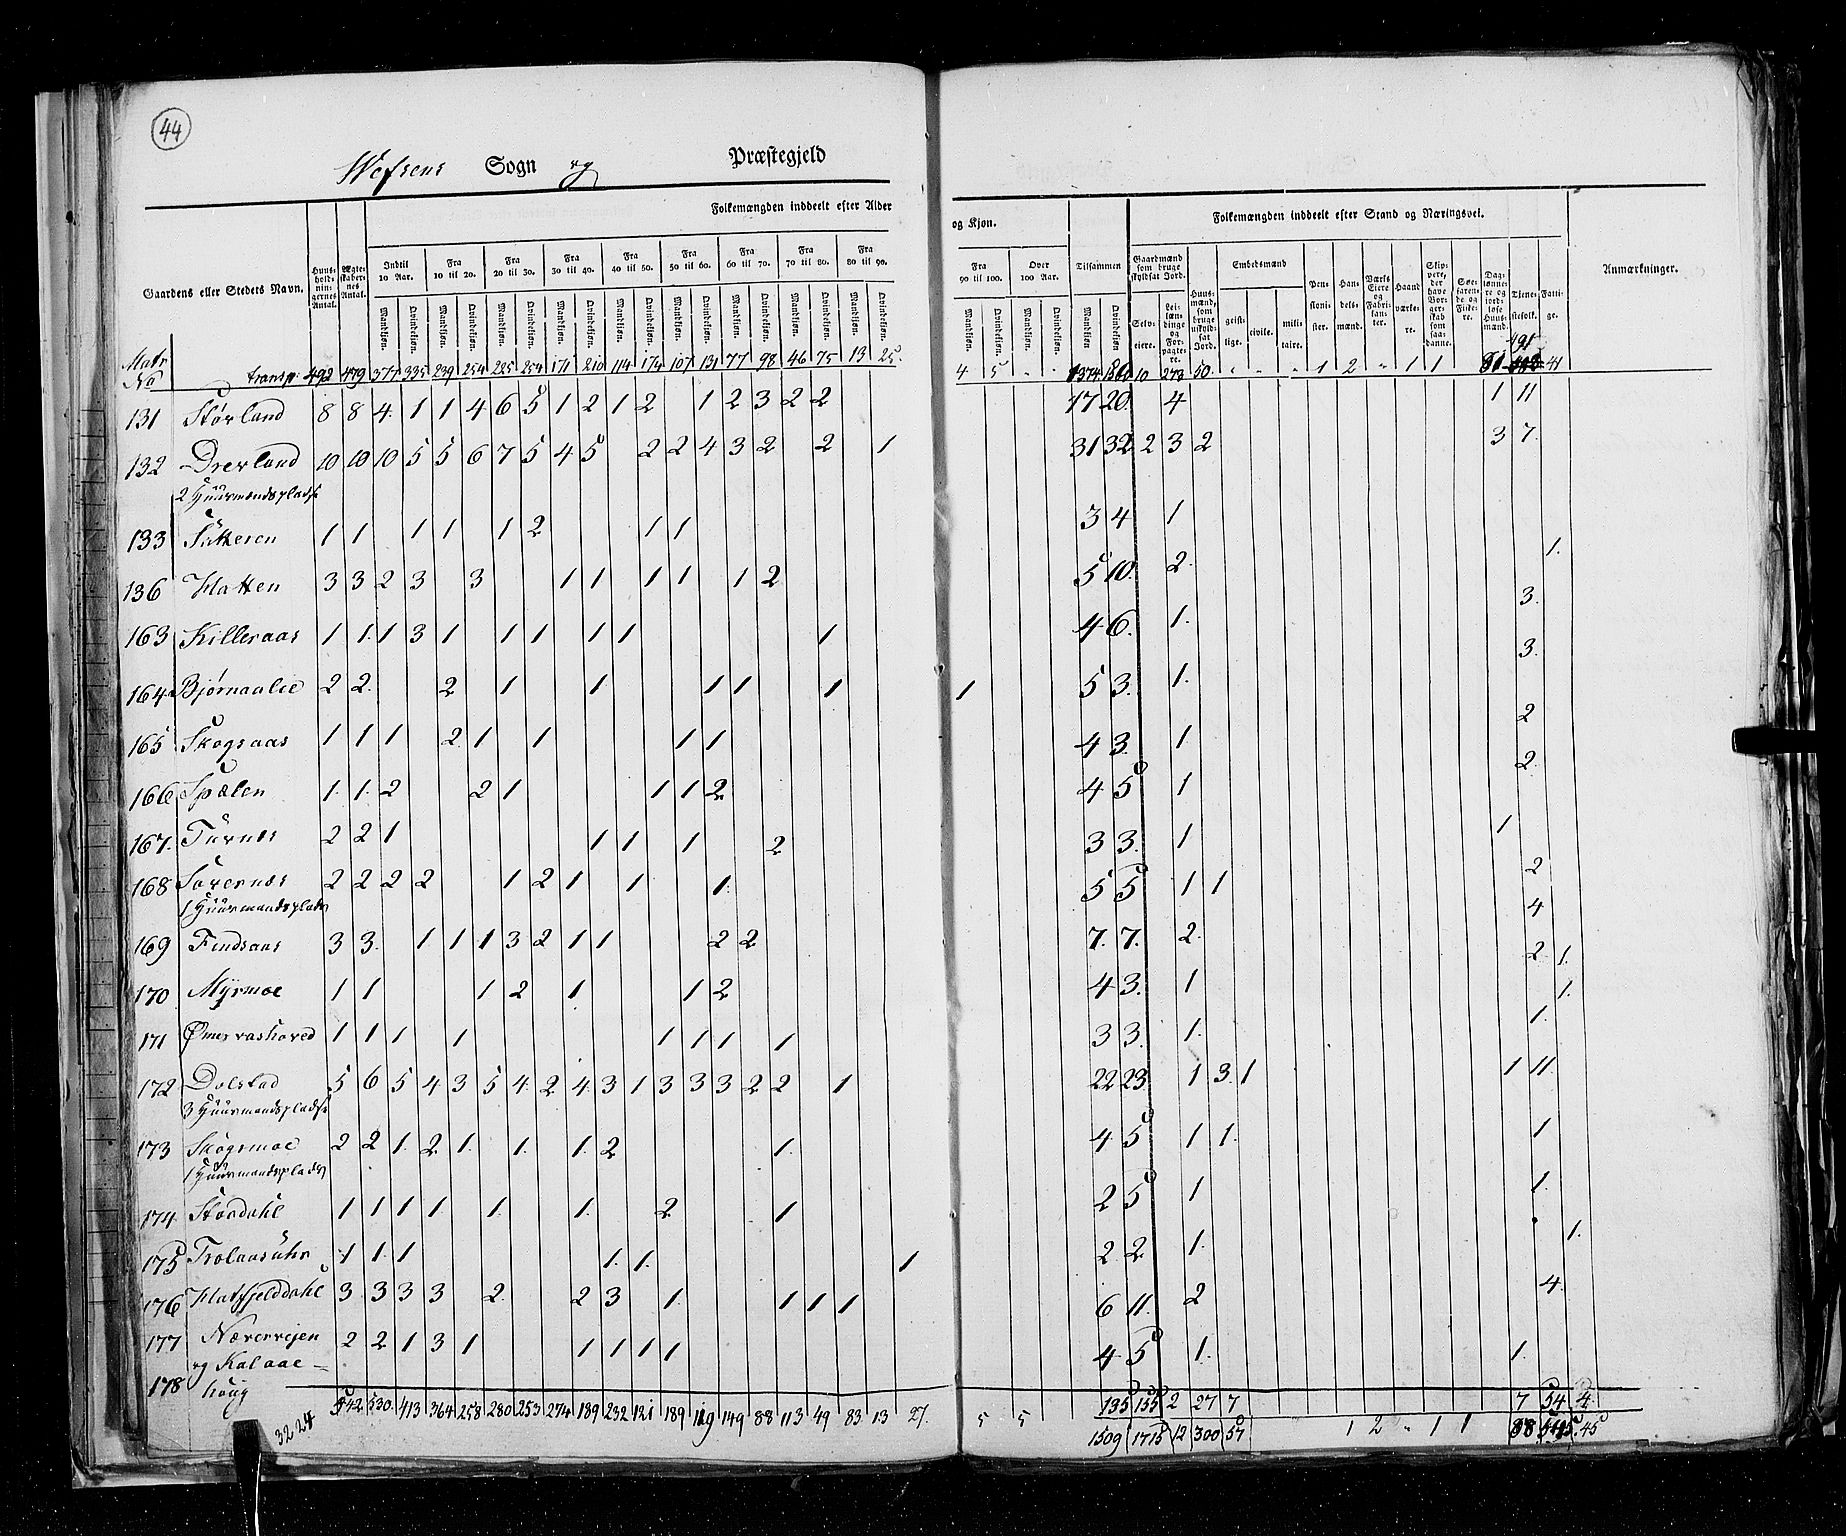 44
Wefsens Sogn og Præstegjeld
Gaardens eller Stedets Navn.
Huusholdningernes Antal.
Ægteskabernes Antal.
Folkemængden inddeelt efter Alder
Indtil 10 Aar. Fra 10 til 20. Fra 20 til 30. Fra 30 til 40. Fra 40 til 50. Fra 50 til 60. Fra 60 til 70. Fra 70 til 80. Fra 80 til 90.
Mandkjøn. Qvindekjøn. Mandkjøn. Qvindekjøn. Mandkjøn. Qvindekjøn. Mandkjøn. Qvindekjøn. Mandkjøn. Qvindekjøn. Mandkjøn. Qvindekjøn. Mandkjøn. Qvindekjøn. Mandkjøn. Qvindekjøn. Mandkjøn. Qvindekjøn.
Matr No transp: 492 479 377 335 239 254 225 254 171 210 114 174 107 131 77 98 46 75 13 25.
131 Størland 8 8 4 1 1 4 6 5 1 2 1 2 1 2 3 2 2
132 Drevland 10 10 10 5 5 6 7 5 4 5 2 2 4 3 2 2 1
2 Huusmandspladse
133 1 1 1 1 1 2 1 1
136 Hatten 3 3 2 3 3 1 1 1 1 1 2
163 Killeraas 1 1. 1 3 1 1 1 1 1 1
164 Bjørnaalie 2 2. 2 1 1 1 1 1
165 Skogsaas 1 1 1 2 1 1 1 1
166 Spælen 1. 1. 2 2 1 1 1 2
167. Turnæs 2 2 1 1 1 1 2
168 2 2 2 2 1 2 1 1 1.
1 Huusmandsplads
169 Findsaas 3 3. 1 1 1 3 2 1 1 2 2
170 Myrmoe 1 1 1 2 1 1 2
171 1 1 1 1 1 1 1 1
172 Dolstad 5 6 5 4 3 5 4 2 4 3 1 3 3 3 2 2 1
3 Huusmandspladse
173 Skogsmoe 2 2 1. 2 1. 1. 1. 2 1.
1 Huusmandsplads
174 Stordahl 1 1 1 1 1. 1. 2 1
175 1 1. 1 1. 1. 1
176 Hatfjelddahl 3 3 3 3 2 2 3 1. 1 1 1
177 2 2 1 3 1 1 1 1 1
178 houg
542 530 413 364 258 280 253 274 189 232 121 189 119 149 88 113 49 83 13 27.
3224
og Kjøn.
Fra 90 til 100. Over 100 Aar. Tilsammen
Mandkjøn. Qvindekjøn. Mandkjøn. Qvindekjøn. Mandkjøn. Qvindekjøn.
Folkemængden inddeelt efter Stand og Næringsvei.
Gaardmænd som bruge skyldsat Jord.
Selveiere. Leilændinge og Forpagtere.
Huusmænd, som bruge uskyldsat Jord.
Embedsmænd
geistlige. civile. militaire.
Pensionister.
Handelsmænd.
Værks Eiere og Fabrikanter.
Haandværkere.
Skippere, der have Borgerskab som saadanne.
Søefarende og Fiskere.
Daglønnere og jordløse Huusmænd.
Tjenestefolk.
Fattige.
Anmærkninger.
491
4 5 1374 1560 10 273 50. 1 2 1 1 81 41
17 20. 4 1 11
31 32 2 3 2 3 7.
3 4 1
5 10. 2. 1.
4 6. 1. 3.
1 5 3. 1. 3.
4 3. 1 2
4 5 1 2.
3 3. 1 1
5 5 1 1 2
7. 7. 2. 4
4 3. 1 2 1.
3 3. 1. 1.
1.
22 23. 1 3. 1 1 11
4 5 1 1. 1
2 5 1 1.
2 2. 1. 1.
6 11. 2 4.
4 5 1. 1.
135 155 2 27 7 7 54 4
5 5 1509 1715 12 300 57 1 2 1 1 88 545. 45